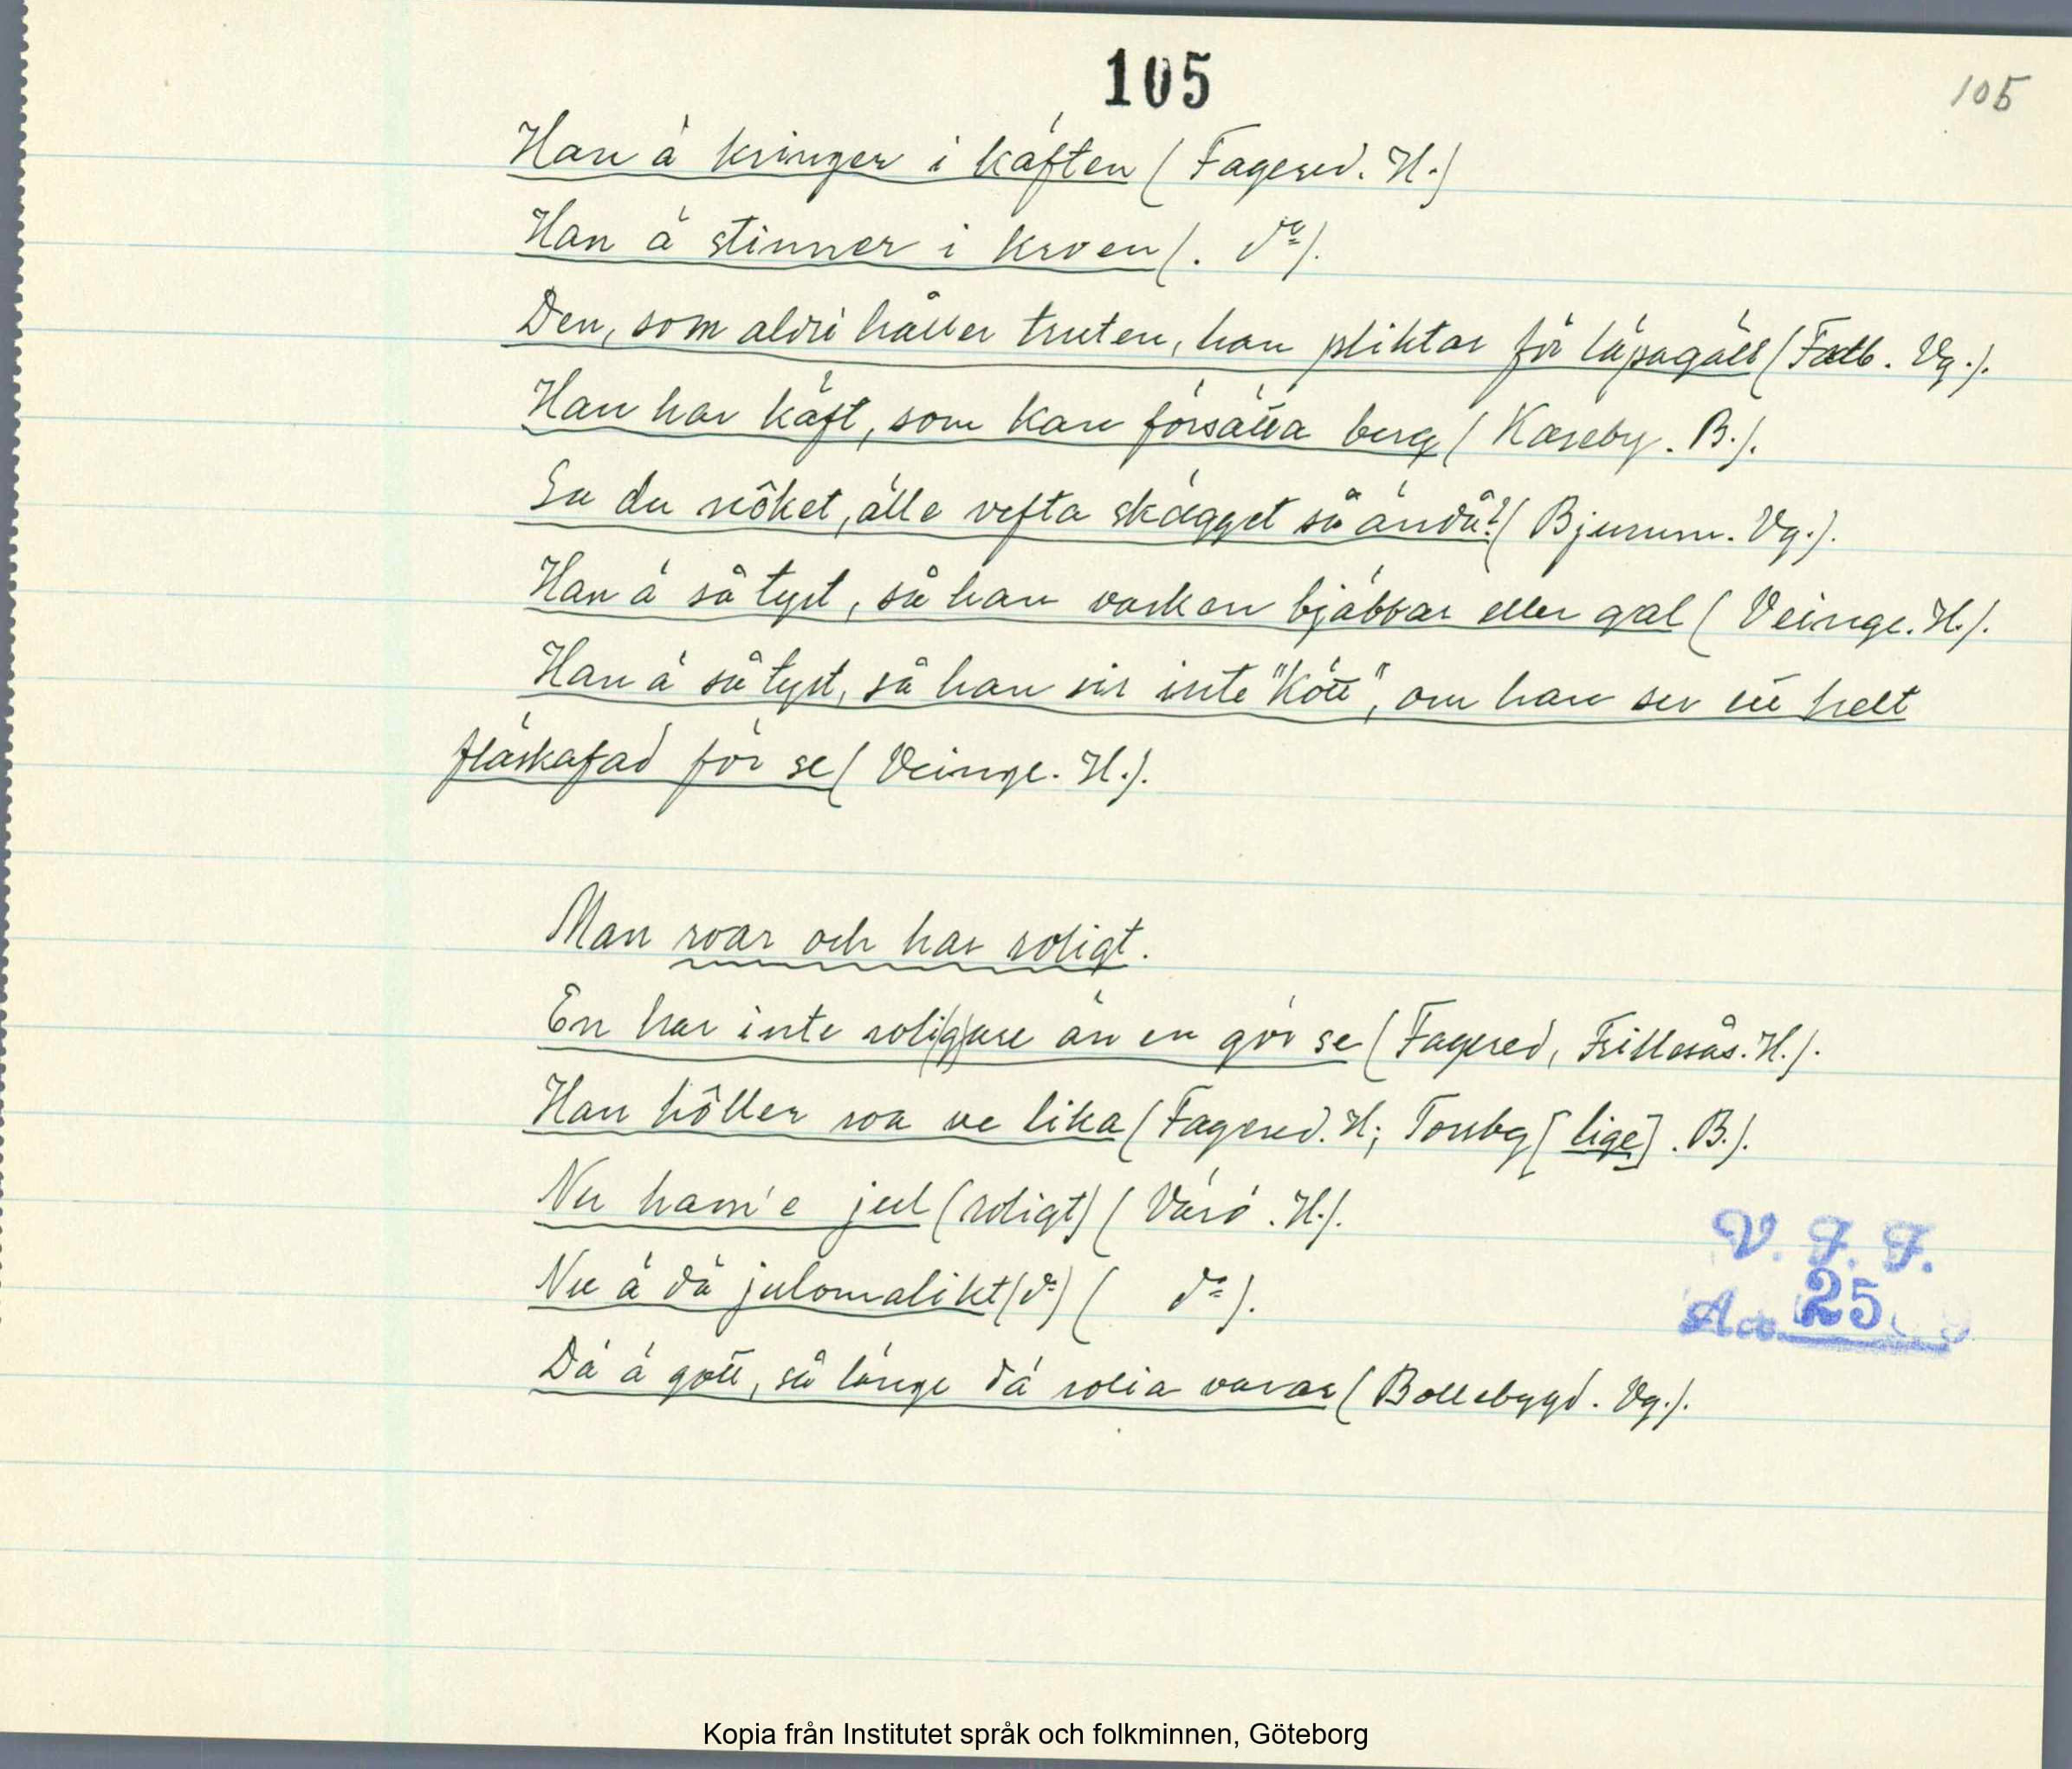 105
105
Han ä kringer i käften (Fagered. H.)
Han ä stinner i kroen (. dº).
Den, som aldri håller truten, han pliktar för läpagäll (Fotb. Vg.).
Han har käft, som kan försätta berg (Kareby. B.).
Sa du nôket, älle vefta skägget så ändå? (Bjurum. Vg.).
Han ä så tyst, så han varken bjäbbar eller gal (Veinge. H.).
Han ä så tyst, så han sir inte "Kött", om han ser ett helt
fläskafad för se (Veinge. H.).
Man roar och har roligt.
En har inte roli(g)are än en gör se (Fagered, Frillesås. H.).
Han hôller roa ve lika (Fagered. H; Torsby [lige]. B.).
Nu ham'e jul (roligt) (Värö. H.).
Nu ä dä julomalikt (dº) ( dº).
V. F. F.
Dä ä gott, så länge dä rolia varar (Bollebygd. Vg.).
25
Kopia från Institutet språk och folkminnen, Göteborg